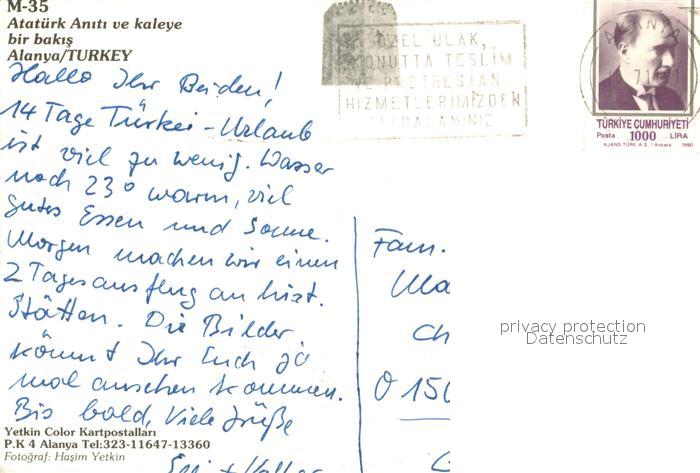 M-35
Atatürk Anıtı ve kaleye
bir bakış
Alanya/TURKEY
Hallo Ihr Beiden!
14 Tage Türkei-Urlaub
ist viel zu wenig. Wasser
noch 23° warm, viel
gutes Essen und Sonne.
Morgen machen wir einen
2 Tagesausflug an hist.
Stätten. Die Bilder
könnt Ihr Euch ja
mal ansehen kommen.
Bis bald, Viele Grüße
Yetkin Color Kartpostalları
P.K 4 Alanya Tel:323-11647-13360
Fotoğraf: Haşim Yetkin
ÖZEL ULAK,
KONUTTA TESLİM
VE POSTRESTAN
HİZMETLERİMİZDEN
ALANYA
TÜRKİYE CUMHURİYETİ
Posta 1000 LİRA
AJANS-TÜRK A.Ş. / Ankara 1990
Fam.
Ma
Ch
O 150
privacy protection
Datenschutz